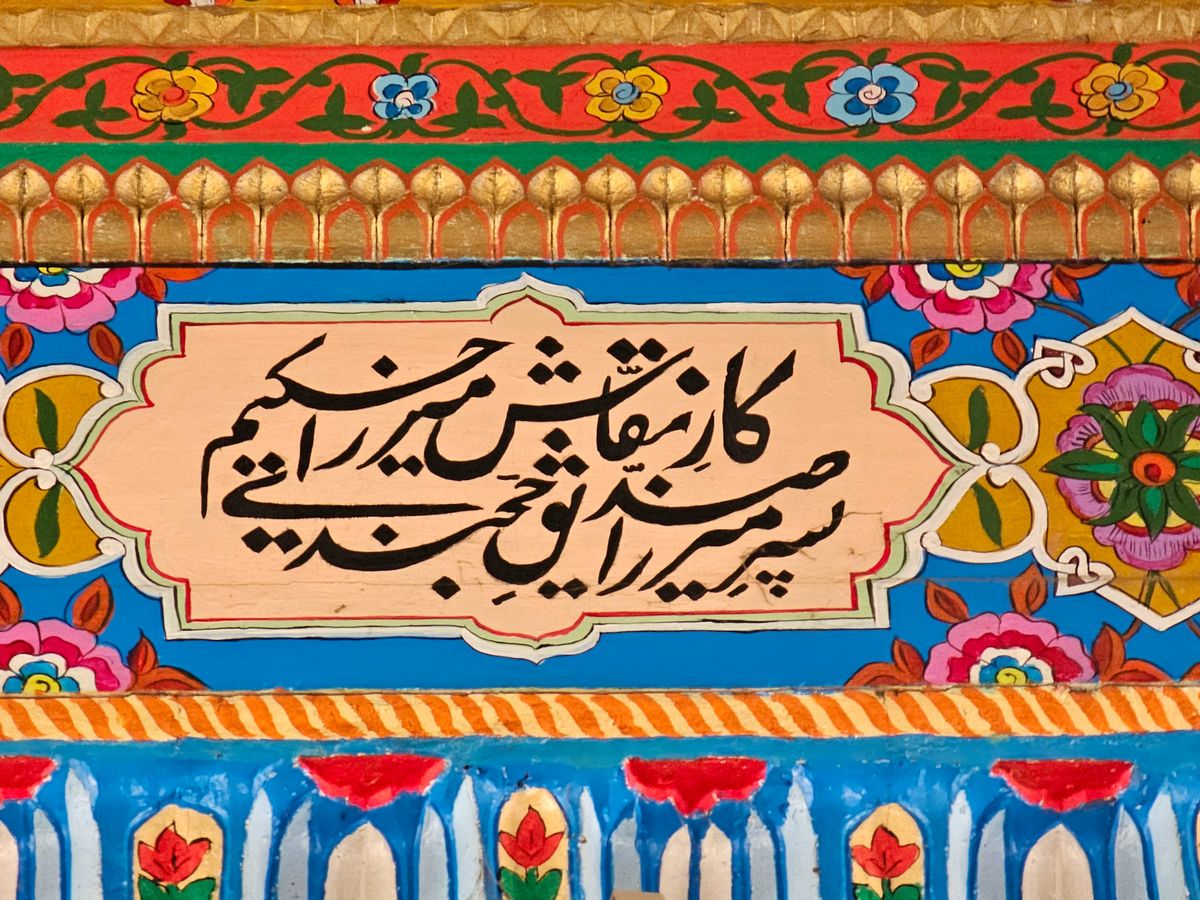 کارِ نقّاش میرزا حکیم
پسرِ میرزا صدّیقِ خجَندی